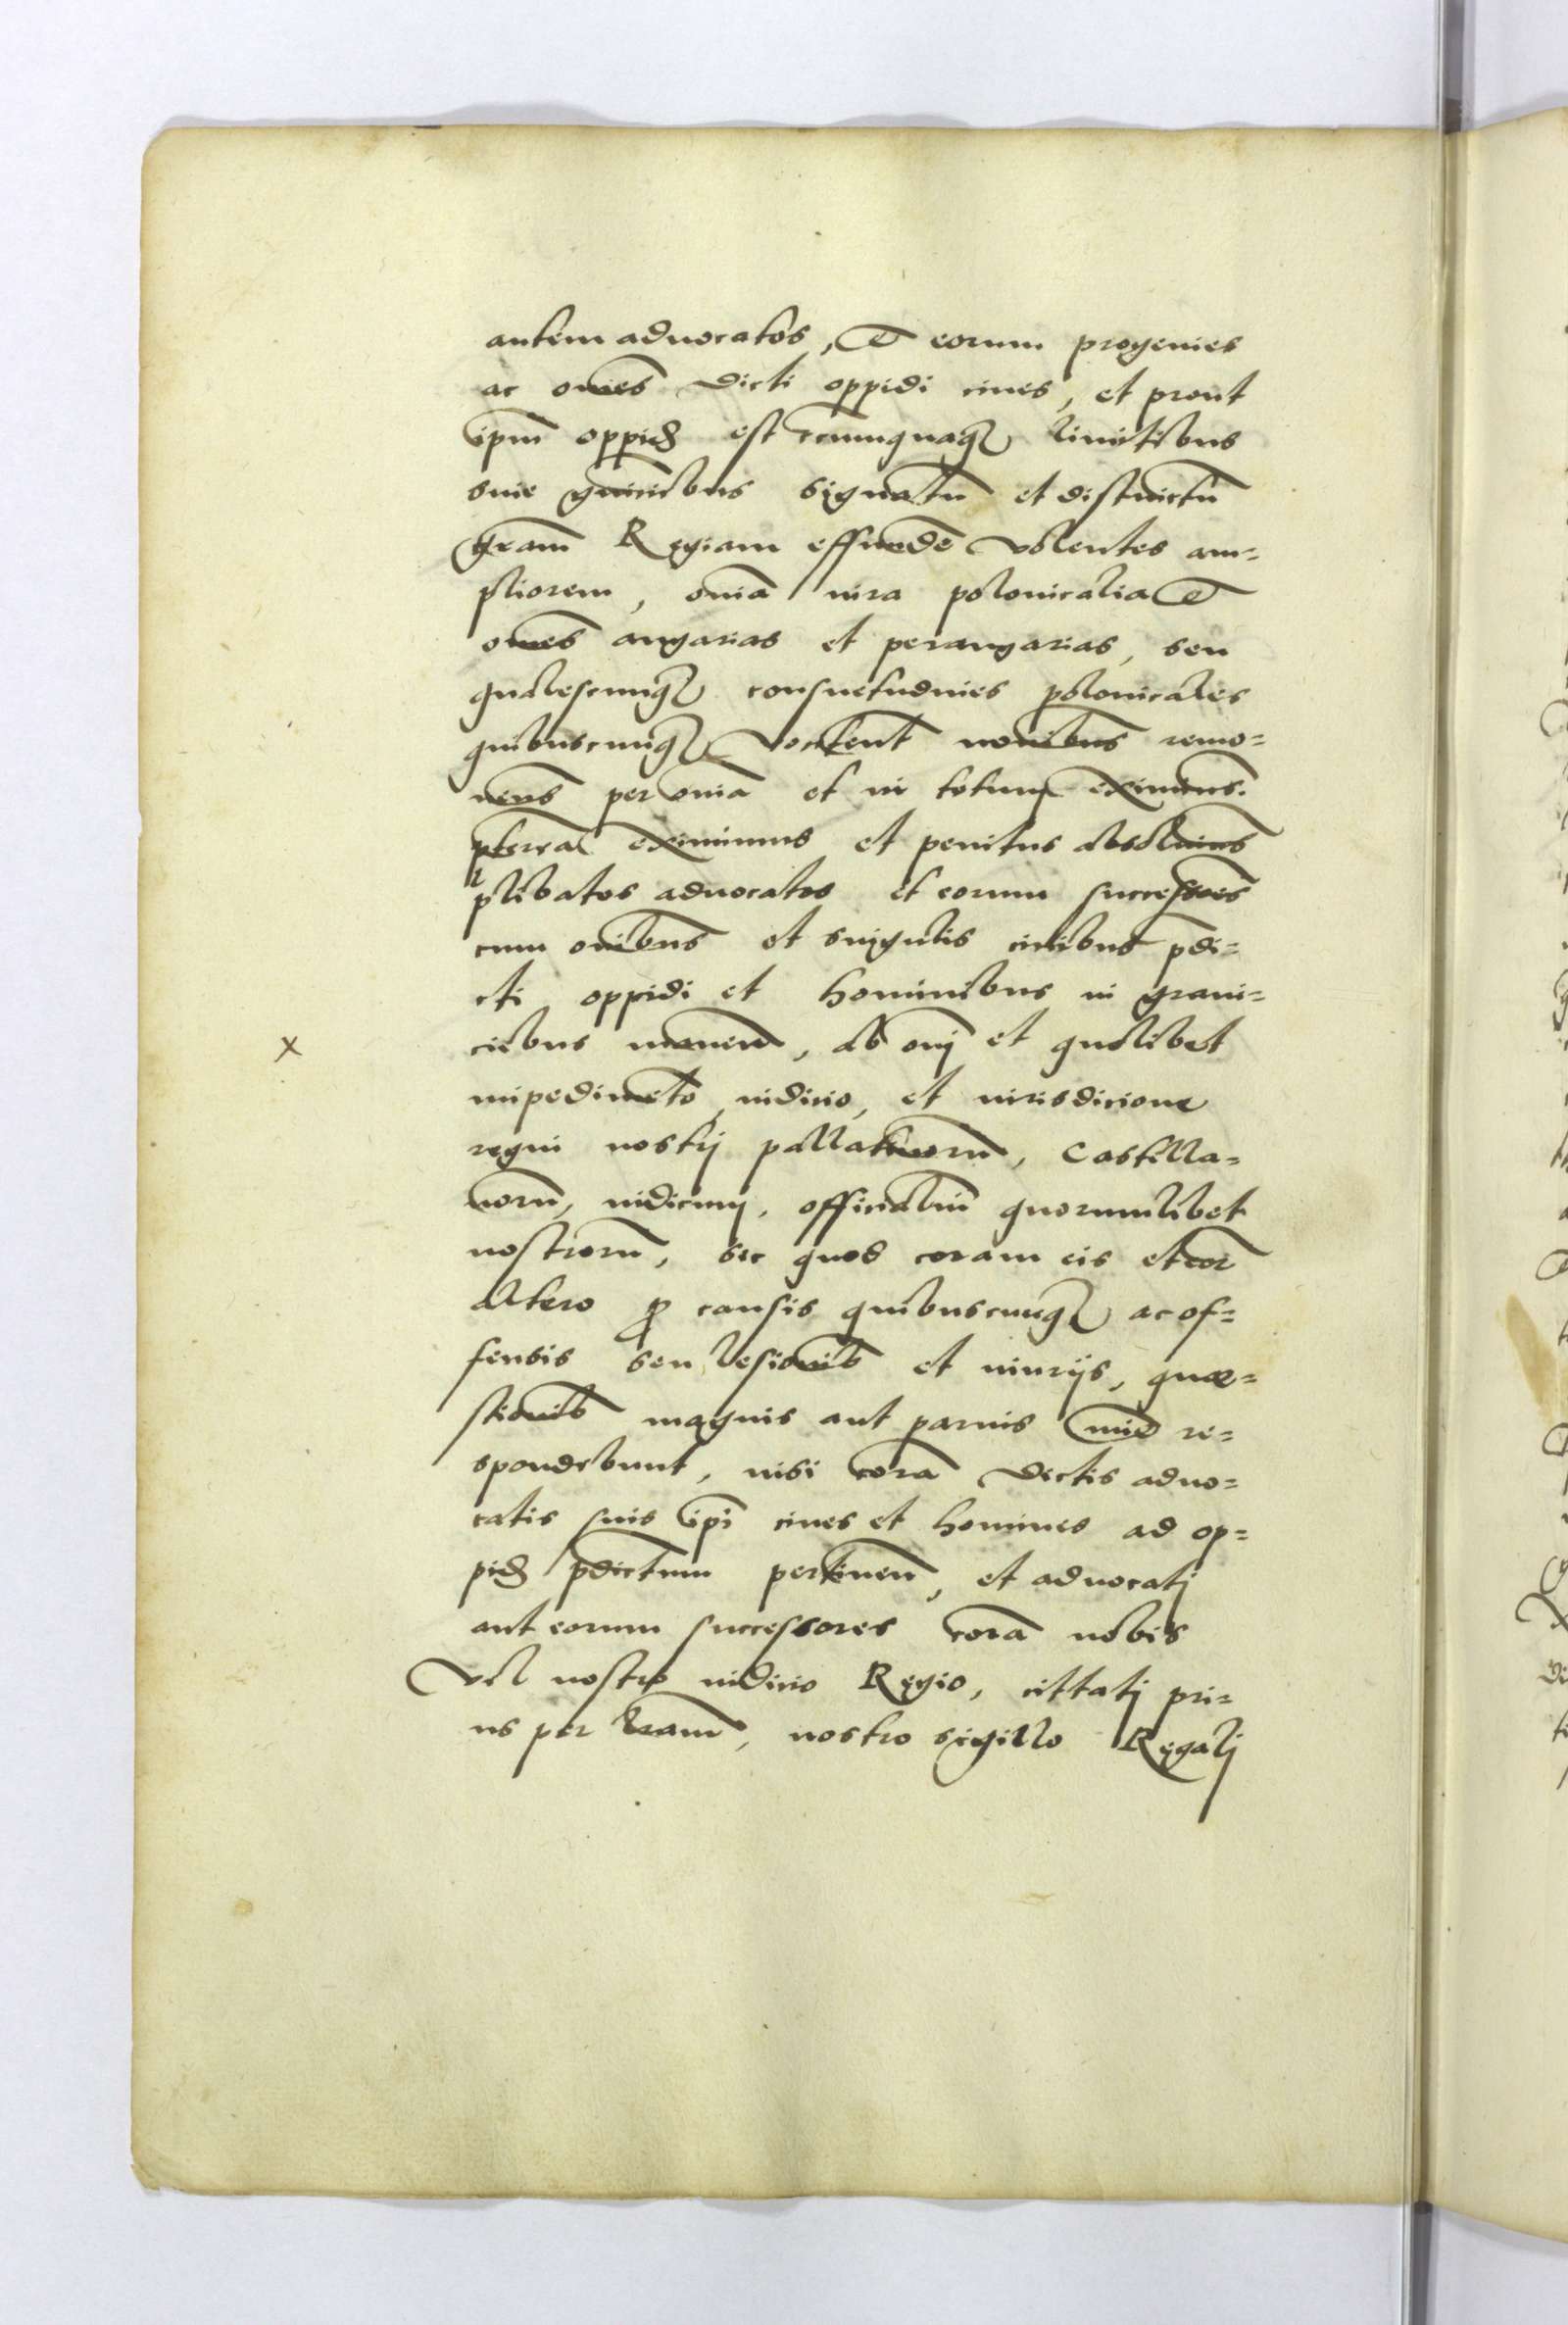 autem advocatos, et eorum progenies
ac om̄es dicti oppidi cives, et prout
ip̄m oppid est circumquaq; limitibus
sive graniciebus signatū et distinctū
gr̄am Regiam effundē volentes am=
pliorem, om̄ia iura polonicalia et
om̄es angarias et perangarias, seu
qualescunq; consuetudines polonicales
quibuscunq; vocitent nom̄ibus remo=
vens per om̄ia et in totum eximens.
p̄terea eximimus et penitus absolvim̄s
p̄libatos advocatos et eorum successōes
cum om̄ibus et singulis civibus p̄di=
cti oppidi et hominibus in grani=
ciebus manen̄, ab om̄j et quolibet
impedimēto, iudicio, et iurisdicione
regni nostrj pallatinorū, Castella=
norū, iudicum, officialiū quorumlibet
nostrorū, sic quod coram eis et cor̄
altero p causis quibuscunq; ac of=
fensis seu lesionib et iniurijs, quæ=
stionib magnis aut parvis mi͞e re=
spondebunt, nisi corā dictis advo=
catis suis ip̄i cives et homines ad op=
pid p̄dictum pertinen̄, et advocatj
aut eorum successores corā nobis
vel nostro iudicio Regio, cittatj pri=
us per lr̄am, nostro sigillo Regalj
x